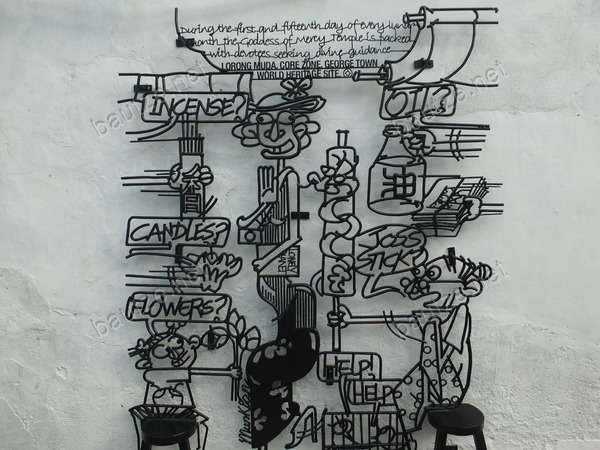 During the first and fifteenth day of every lunar
month the Goddess of Mercy Temple is packed
with devotees seeking divine guidance
LORONG MUDA, CORE ZONE, GEORGE TOWN
WORLD HERITAGE SITE ©
INCENSE?
OIL?
香
油
CANDLES?
JOSS
STICK?
LONELY
PLANET
FLOWERS?
HELP!
HELP!